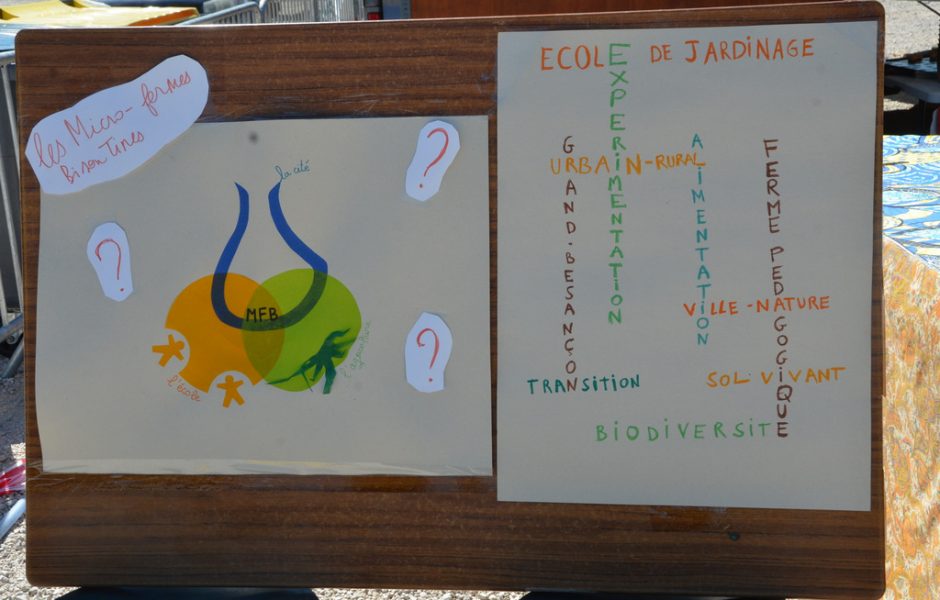 les Micro-fermes
bisonTines
la cité
MFB
l'école
l'agriculture
?
?
?
?
ECOLE DE JARDINAGE
EXPERiMENTATiON
GRAND-BESANÇON
URBAiN-RURAL
ALiMENTATiON
FERME PEDAGOGiQUE
ViLLE-NATURE
TRANSiTiON
SOL ViVANT
BiODiVERSiTE